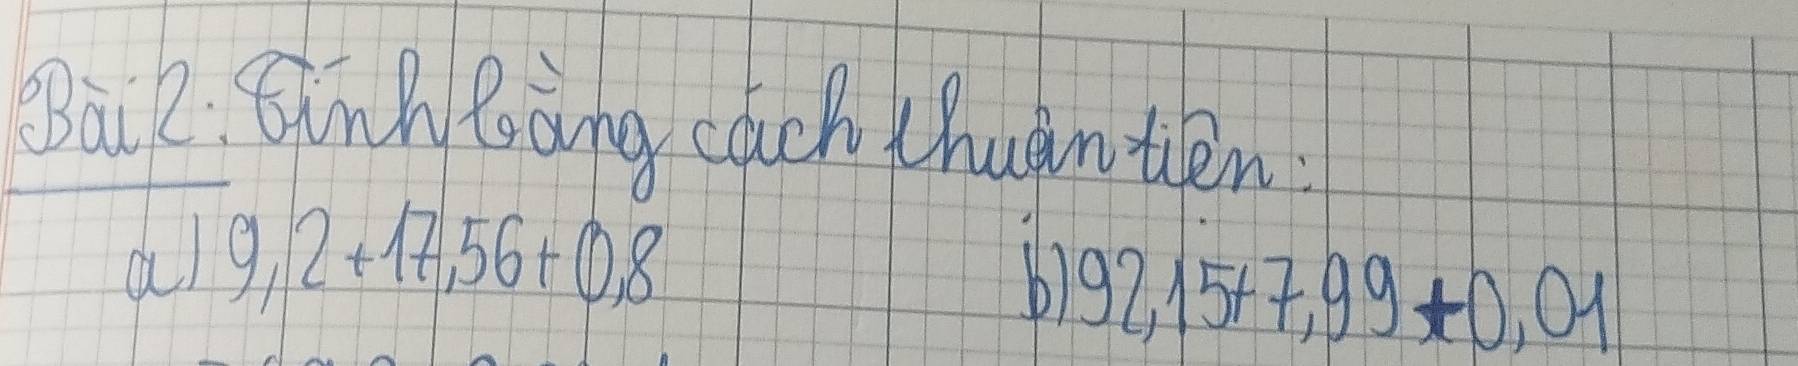 Bài 2: Tính bằng cách thuận tiện:
a) 9,2 + 17,56 + 0,8 b) 92,15 + 7,99 + 0,01